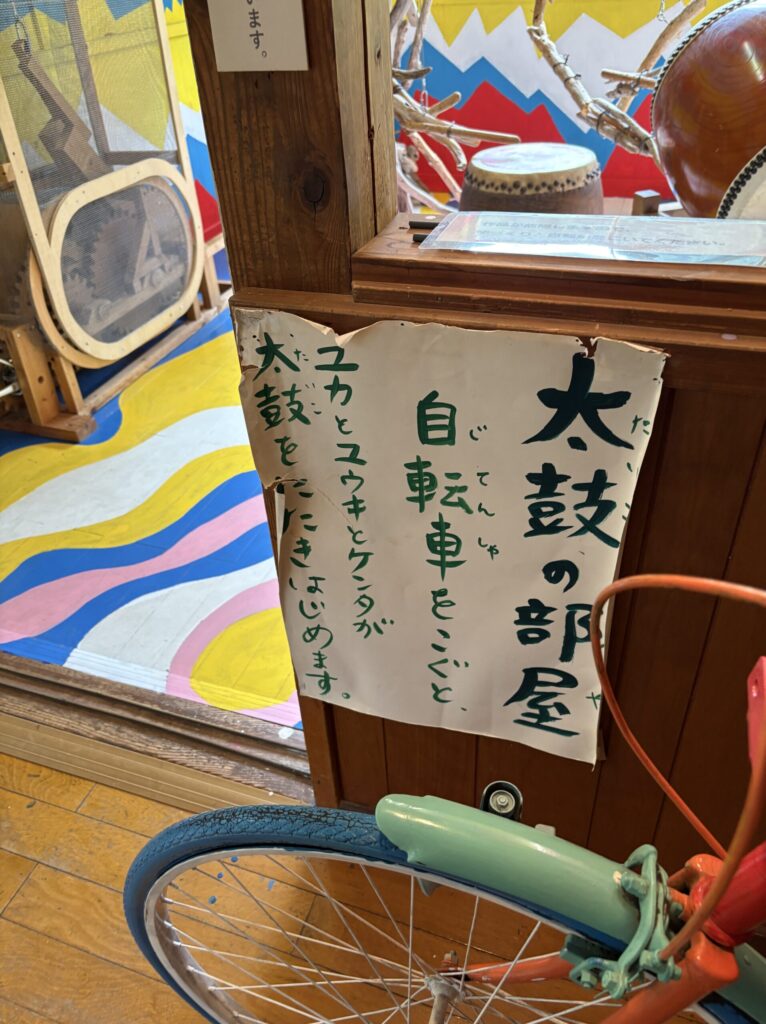 います。
太鼓の部屋
自転車をこぐと、
ユカとユウキとケンタが
太鼓をたたきはじめます。